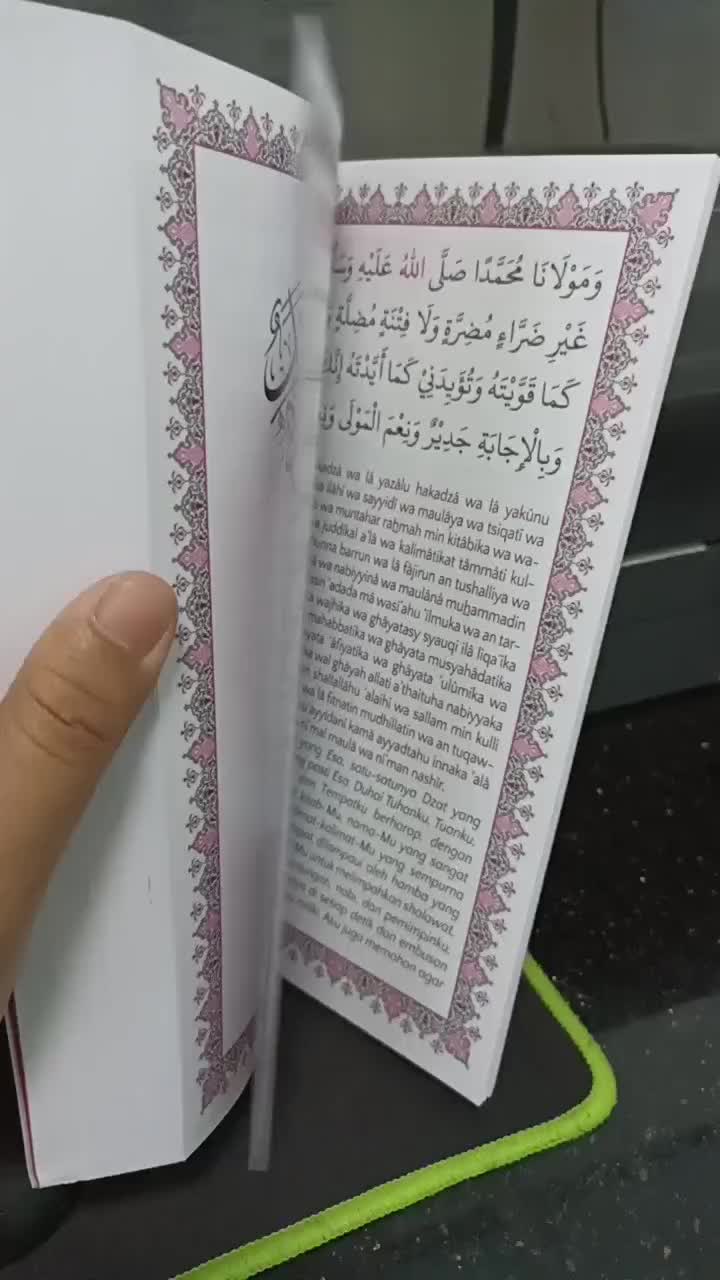 وَمَوْلَانَا مُحَمَّدًا صَلَّى اللهُ عَلَيْهِ
غَيْرِ ضَرَّاءٍ مُضِرَّةٍ وَلَا فِتْنَةٍ مُضِلَّةٍ
كَمَا قَوَّيْتَهُ وَتُؤَيِّدَنِيْ كَمَا أَيَّدْتَهُ
وَبِالْإِجَابَةِ جَدِيْرٌ وَنِعْمَ الْمَوْلَى
wa lâ yazâlu hakadzâ wa lâ yakûnu
ilâhî wa sayyidî wa maulâya wa tsiqatî wa
wa muntahar raḫmah min kitâbika wa wa-
juddikal a'lâ wa kalimâtikat tâmmâti kul-
barrun wa lâ fâjirun an tushalliya wa
wa nabiyyinâ wa maulânâ muḫammadin
'adada mâ wasi'ahu 'ilmuka wa an tar-
wajhika wa ghâyatasy syauqi ilâ liqa'ika
mahabbatika wa ghâyata musyahâdatika
'âfiyatika wa ghâyata 'ulûmika wa
wal ghâyah allati a'thaituha nabiyyaka
shallallâhu 'alaihi wa sallam min kulli
wa lâ fitnatin mudhillatin wa an tuqaw-
ayyidanî kamâ ayyadtahu innaka 'alâ
mal maulâ wa ni'man nashîr.
yang Esa, satu-satunya Dzat yang
pasti Esa. Duhai Tuhanku, Tuanku,
dan Tempatku berharap, dengan
kitab-Mu, nama-Mu yang sangat
kalimat-kalimat-Mu yang sempurna
dapat dilampaui oleh hamba yang
Mu untuk melimpahkan shalawat,
nabi, dan pemimpinku,
di setiap detik dan embusan
Aku juga memohon agar